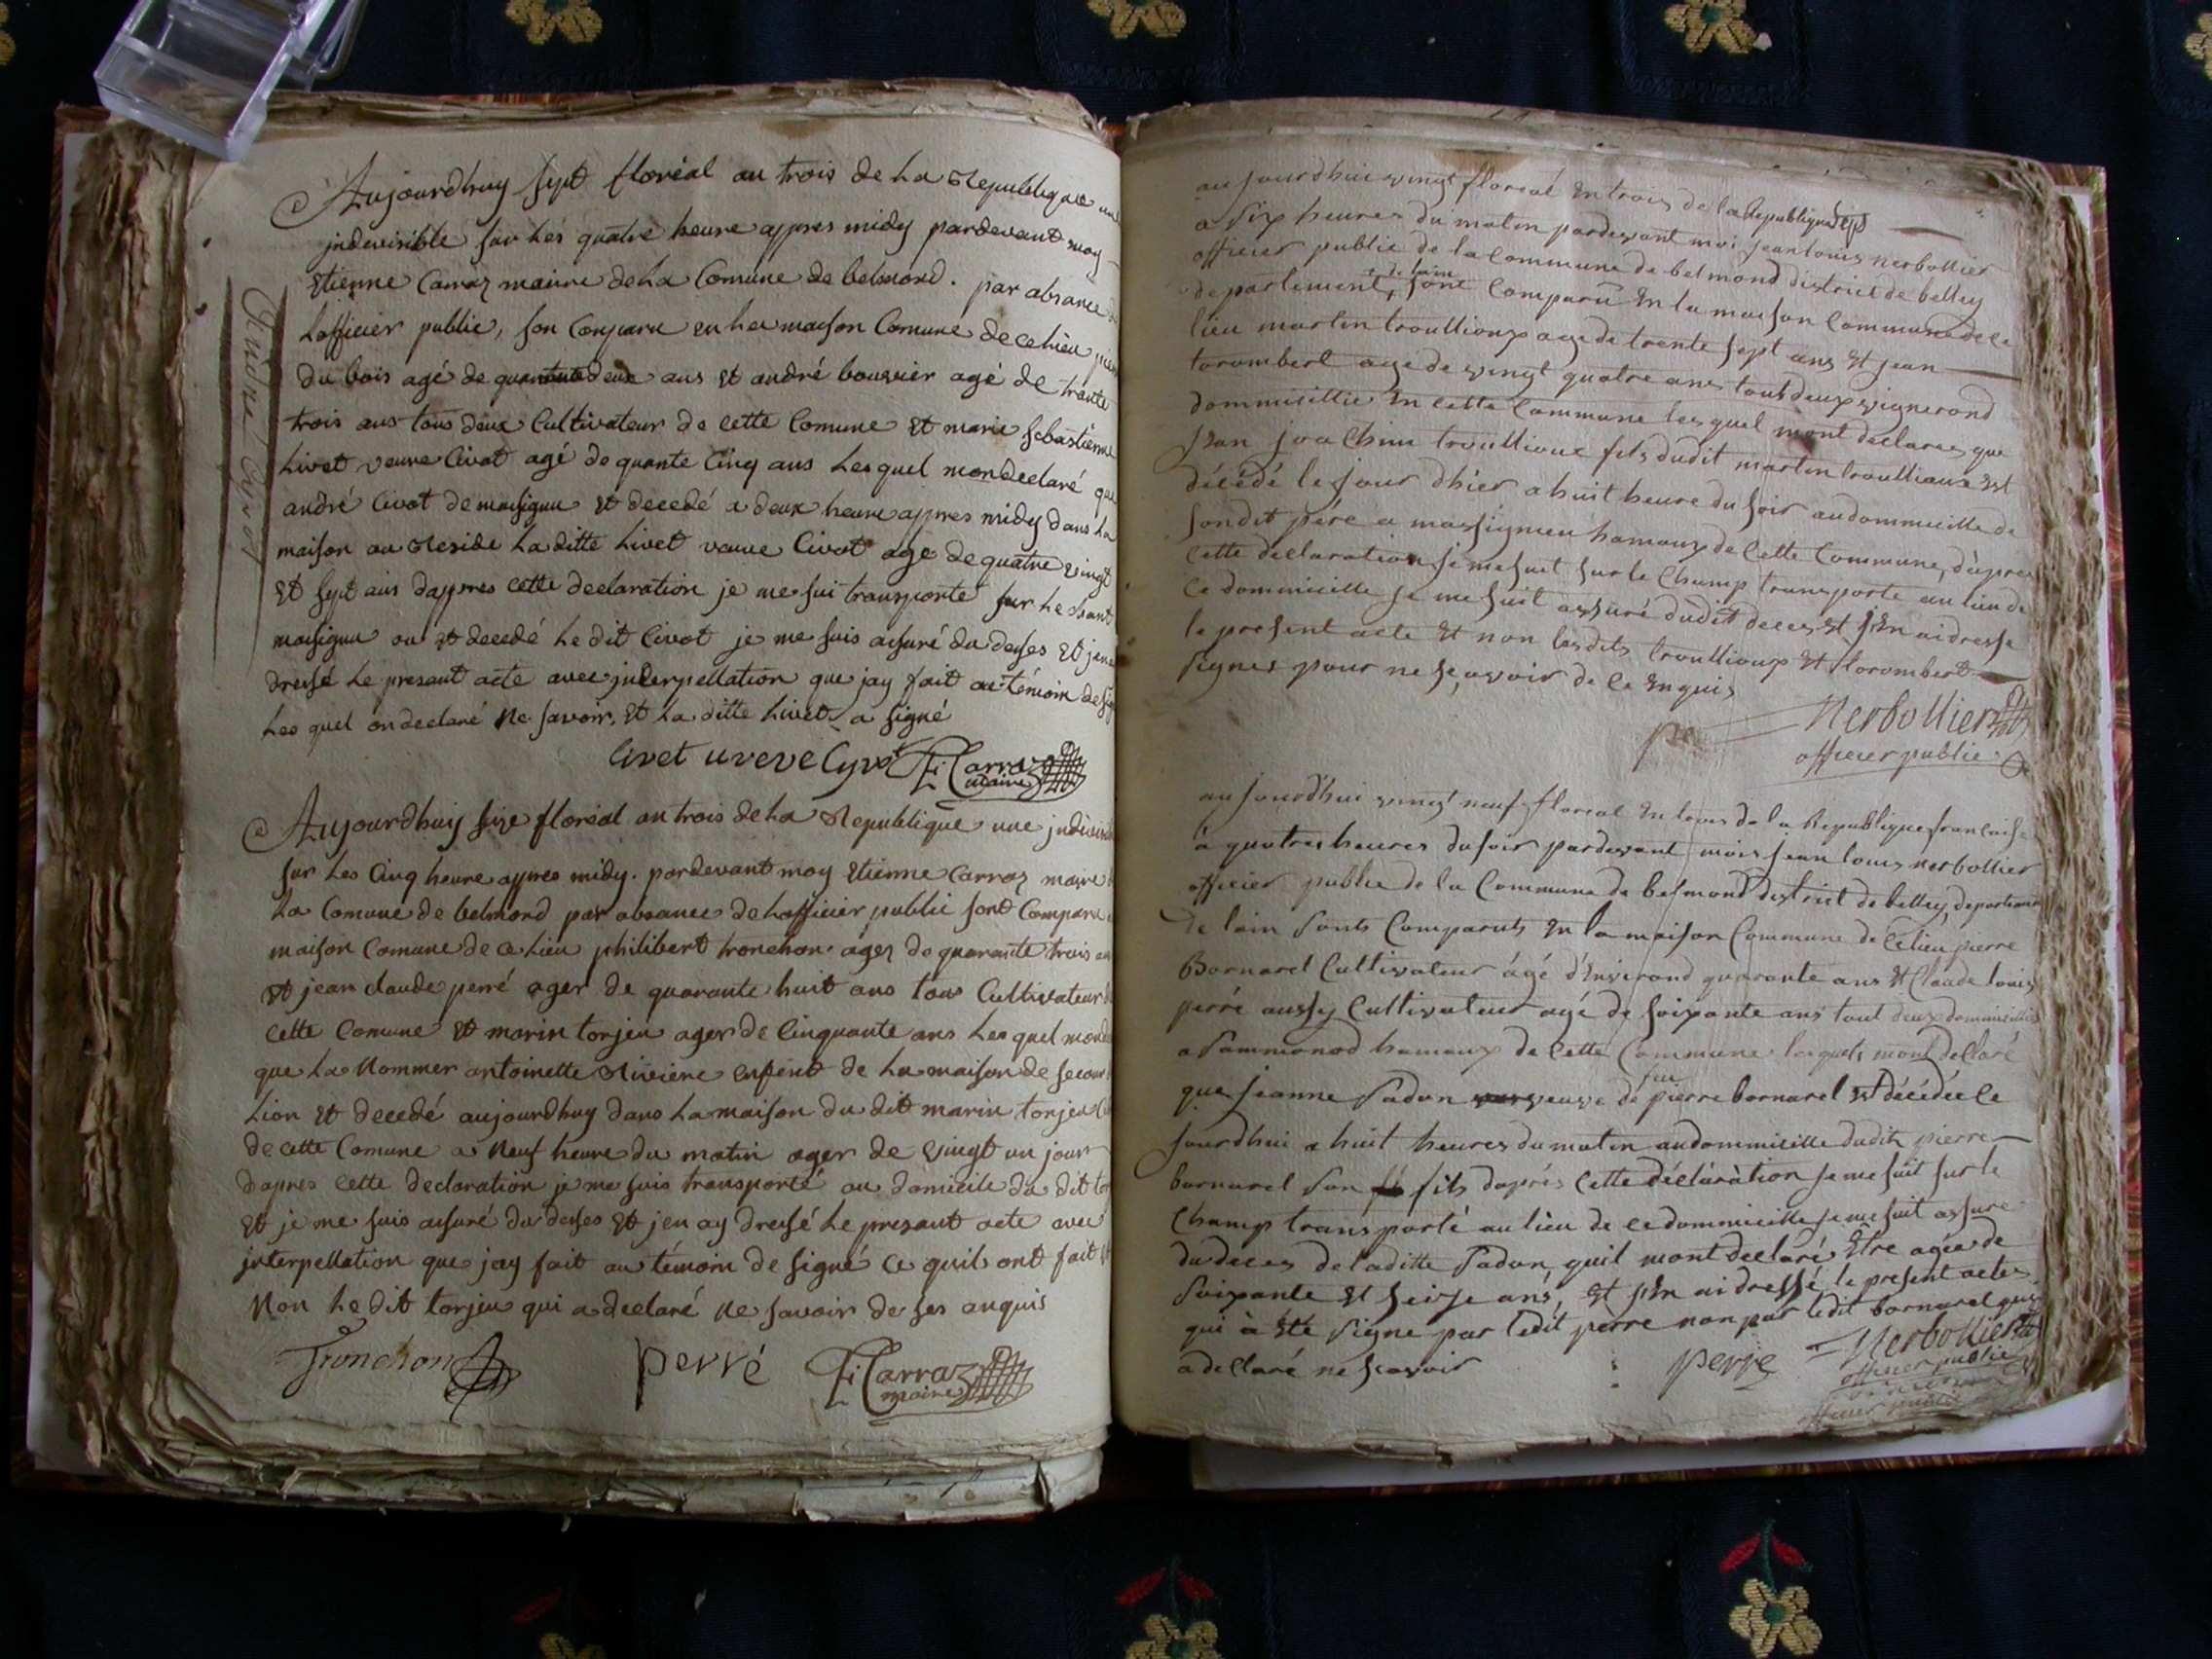 Aujourdhuy sept floréal an trois de La Republique une
indevisible sur Les quatre heure appres midy pardevant moy
Etienne Carraz maire de La Comune de belmond. par absance
Lofficier public, son Conparu en La maison Comune de ce Lieu
du bois agé de quarante deux ans et andré bouvier agé de trante
trois ans tous deux Cultivateur de cette Comune et marie sebastienne
Livet veuve Civot agé de quante Cinq ans Lesquel mon declaré que
andré Civot de massigneu et decedé a deux heure appres midy dans La
maison au Reside La ditte Livet veuve Civot age de quatre vingt
et sept ans dappres cette declaration je me sui transporté sur Le
massigneu ou et decedé Le dit Civot je me suis assuré du deses et
dressé Le presant acte avec interpellation que jay fait au temoin de
Lesquel on declaré Ne savoir et La ditte Livet a signé
André Cyvot
Livet uveve Cyvot E Carraz
maire
Aujourdhuy size floréal an trois de La Republique une
sur Les Cinq heure appres midy. pardevant moy Etienne Carraz maire
La Comune de belmond par absance de Lofficier public sont Comparu
maison Comune de ce Lieu philibert tronchon ages de quarante trois
et jean claude perré ager de quarante huit ans tous Cultivateur
cette Comune et marin torjeu ager de Cinquante ans Lesquel
que La Nommer antoinette Riviere enfent de La maison de
Lion et decedé aujourdhuy dans La maison du dit marin torjeu
de cette Comune a Neuf heure du matin ager de vingt un jour
dapres cette declaration je me suis transporté au domicile du dit
et je me suis assuré du deses et jen ay dressé Le presant acte avec
interpellation que jay fait au témoin de signé ce quils ont fait
Non Le dit torjeu qui a declaré ne savoir de ses anquis
Tronchon perré E Carraz
maire
aujourdhui vingt floreal En trois de la Republique
a six heures du matin pardevant moi jean louis nerbollier
officier public de la Commune de belmond district de belley
departement de lain sont Comparu En la maison Commune de ce
lieu martin troullioux age de trente sept ans Et jean
torombert age de vingt quatre ans tout deux vignerond
dommicillie En cette Commune lesquel mont declares que
jean joachim troullioux fils dudit martin troulliaux Est
décédé le jour dhier a huit heure du soir au dommicille de
sondit pére a massigneu hamaux de Cette Commune, dàpres
Cette declaration je me suit sur le Champ transporte au lieu de
Ce dommicille je me suit assuré dudit deces et jEn ai dresse
le present acte Et non lesdits troullioux Et torombert
signes pour ne scavoir de ce Enquis
Nerbollier
officier public
aujourd'hui vingt neuf floreal En trois de la Republique francaise
à quatres heures du soir pardevant mois jean louis nerbollier
officier public de la Commune de belmond district de belley, departement
de lain sonts Comparuts En la maison Commune de Celieu pierre
Bornarel Cultivateur àgé d'Environd quarante ans Et Claude louis
perré aussy Cultivateur agé de soixante ans tout deux dommicilies
a sammonod hamaux de Cette Commune lesquels mont declaré
que jeanne Padon veuve de feu pierre bornarel Est décédée Ce
jourdhui a huit heures du matin au dommicille dudit pierre
bornarel son fils daprés Cette déclàràtion je me suit sur le
Champ transporté au lieu de Ce dommicille je me suit assure
du deces deladitte Padon quil mont declaré Etre agée de
soixante Et seize ans, Et jEn ai dressé le present actes
qui à Eté signe par ledit perre non par ledit bornarel qui
a declaré ne scavoir perre Nerbollier
officier public
officier public